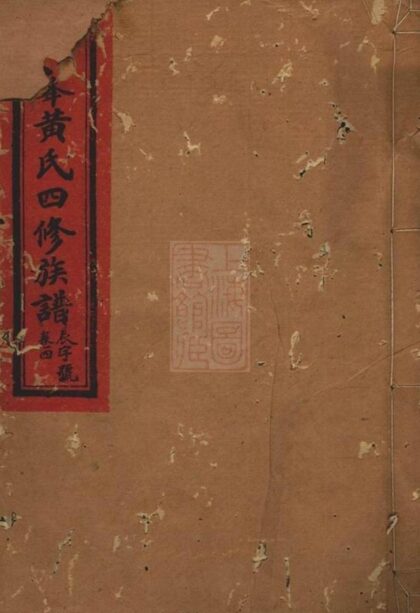 本黃氏四修族譜
辰字號
卷四
上海圖
書館藏